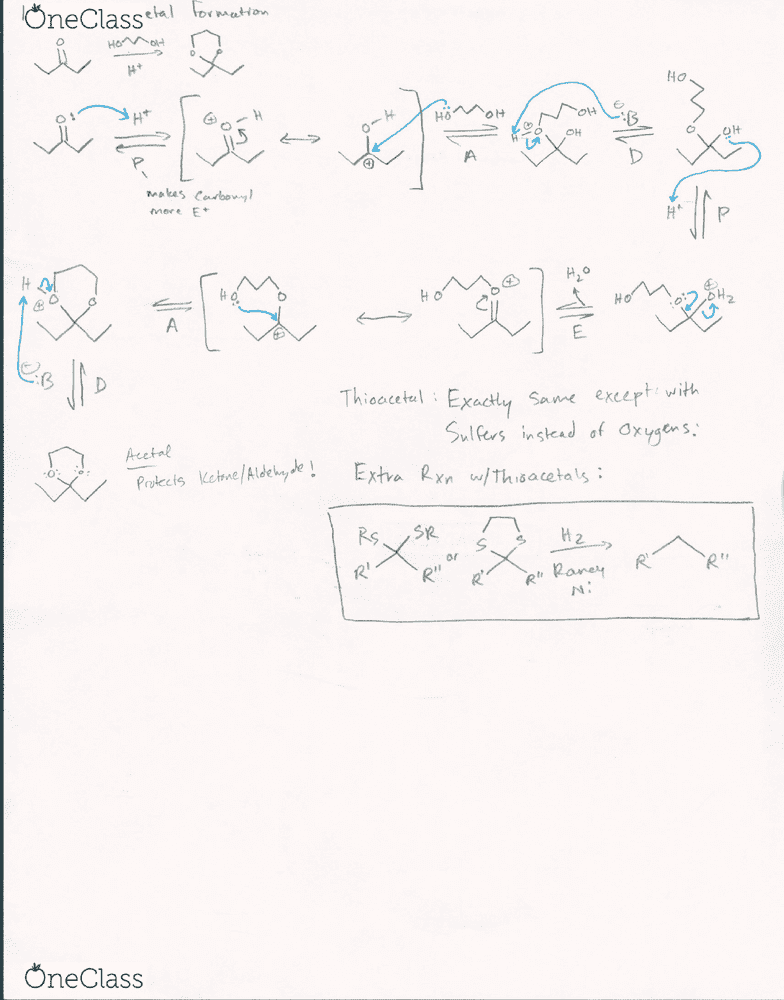 OneClass
etal Formation
O HO OH O O
H+
O: H+ ⊕ O-H O-H HÖ OH OH ⊖:B HO
P, ⊕ H ⊕ O OH O OH
makes Carbonyl A D
more E+ H+ P
H ⊕ O O HO: O HO O ⊕ H2O HO O: ⊕ OH2
A ⊕ E
⊖ :B D
Thioacetal : Exactly same except with
Sulfers instead of Oxygens:
:O: :O: Acetal
Protects Ketone/Aldehyde!
Extra Rxn w/Thioacetals :
RS SR S S H2
R' R" or R' R" Raney R' R"
Ni
OneClass